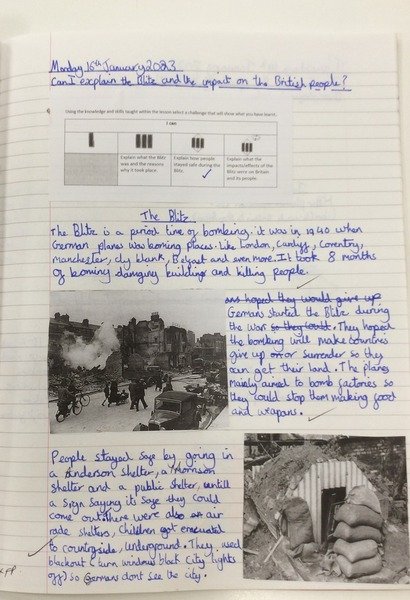 Monday 16th January 2023
Can I explain the Blitz and the impact on the British people?
Using the knowledge and skills taught within the lesson select a challenge that will show what you have learnt.
I can
Explain what the Blitz was and the reasons why it took place.
Explain how people stayed safe during the Blitz.
Explain what the impacts/effects of the Blitz were on Britain and its people.
The Blitz
The Blitz is a period time of bombing. it was in 1940 when
German planes was boming places. Like London, Cardyff, Coventry,
manchester, cly blank, Belfast and even more. It took 8 months
of boming damging building and killing people.
ans hoped they would give up
Germans started the Blitz during
the war so they could. They hoped
the bombing will make countries
give up on or surrender so they
can get their land. The planes
mainly aimed to bomb factories so
they could stop them making food
and weapans.
People stayed safe by going in
a Anderson shelter, a morrison
shelter and a public shelter, untill
a sign saying it's safe they could
come out. there were also air
rade shelters, Children got evacuated
to countryside, underground. They used
blackout (turn windows black City lights
off) so Germans dont see the city.